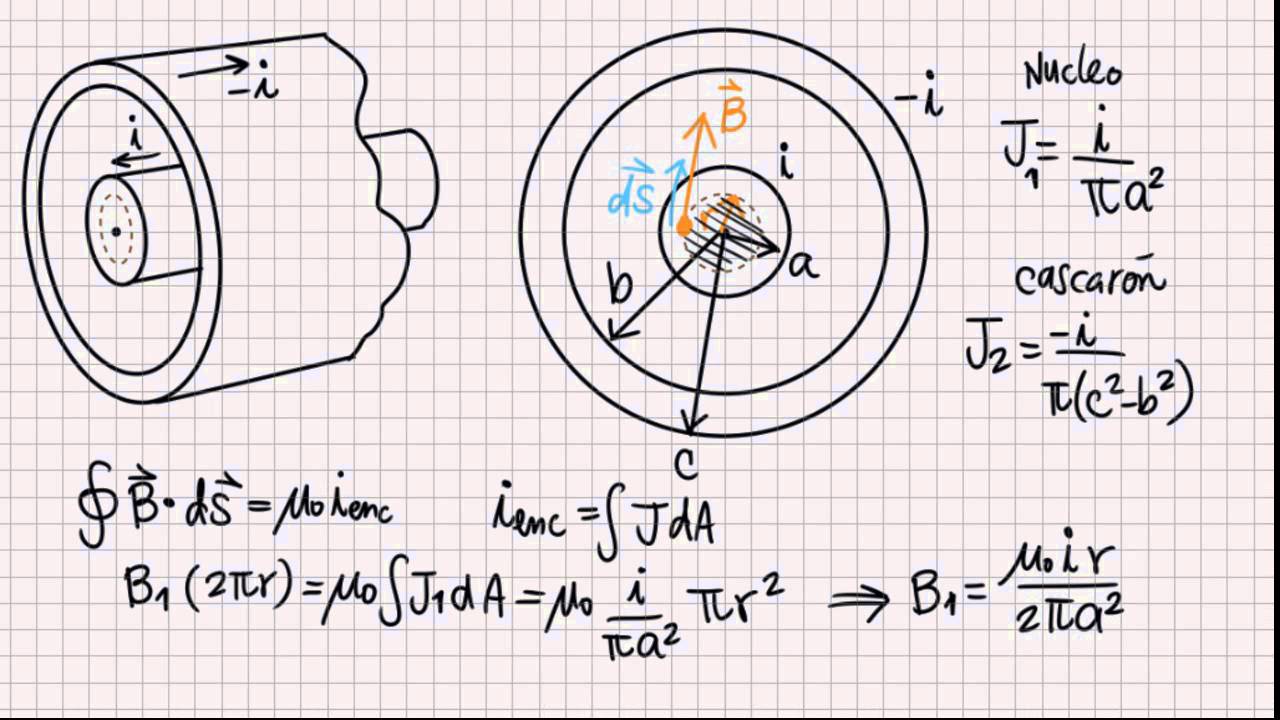 -i
i
B⃗
ds⃗
i
-i
a
b
c
Nucleo
J₁ = i / πa²
cascarón
J₂ = -i / π(c²-b²)
∮ B⃗ · ds⃗ = μ₀ i enc
i enc = ∫ J dA
B₁ (2πr) = μ₀ ∫ J₁ dA = μ₀ i / πa² πr² ⟹ B₁ = μ₀ i r / 2πa²